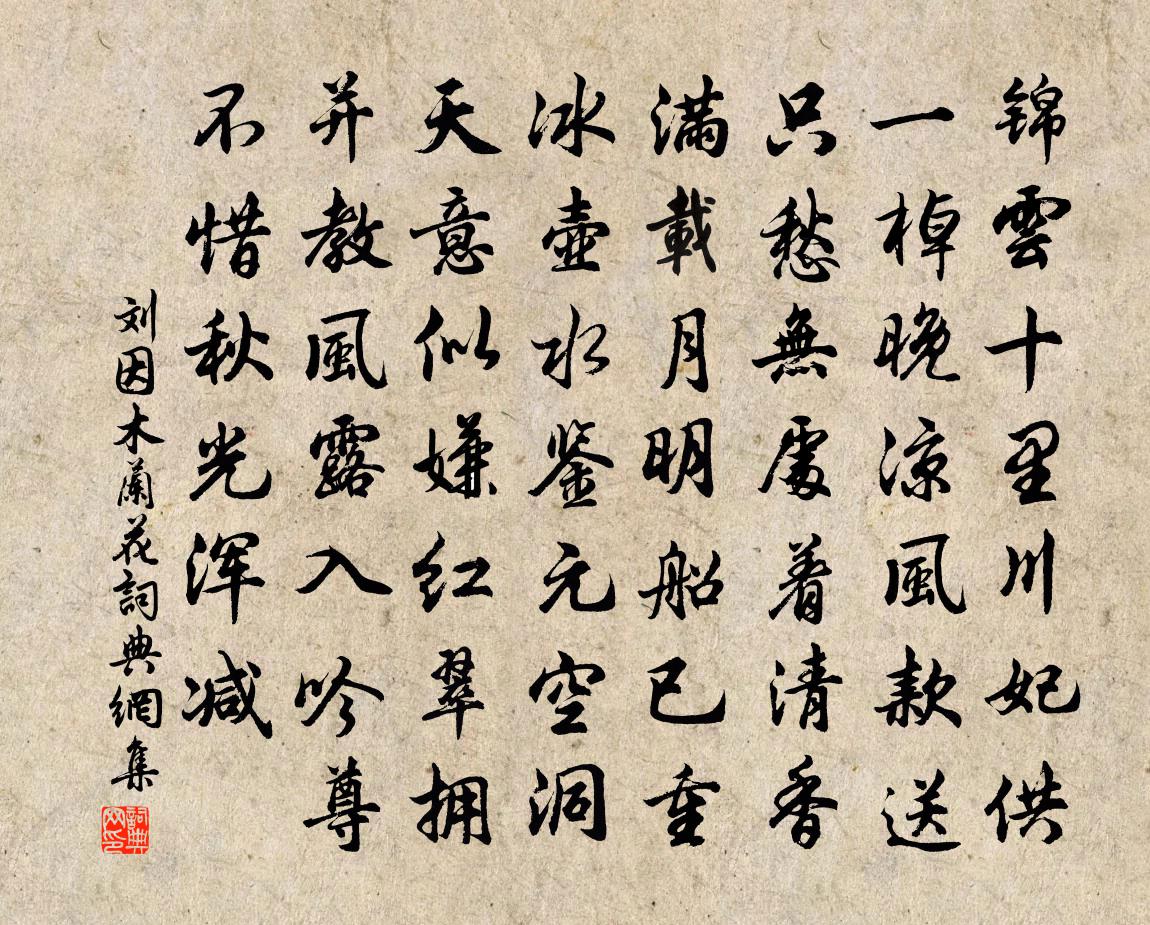 锦雲十里川妃供
一棹晚凉風款送
只愁無處着清香
满載月明船已重
冰壺水鉴元空洞
天意似嫌红翠拥
并教風露入吟尊
不惜秋光浑减
刘因木蘭花詞典網集
詞典网印